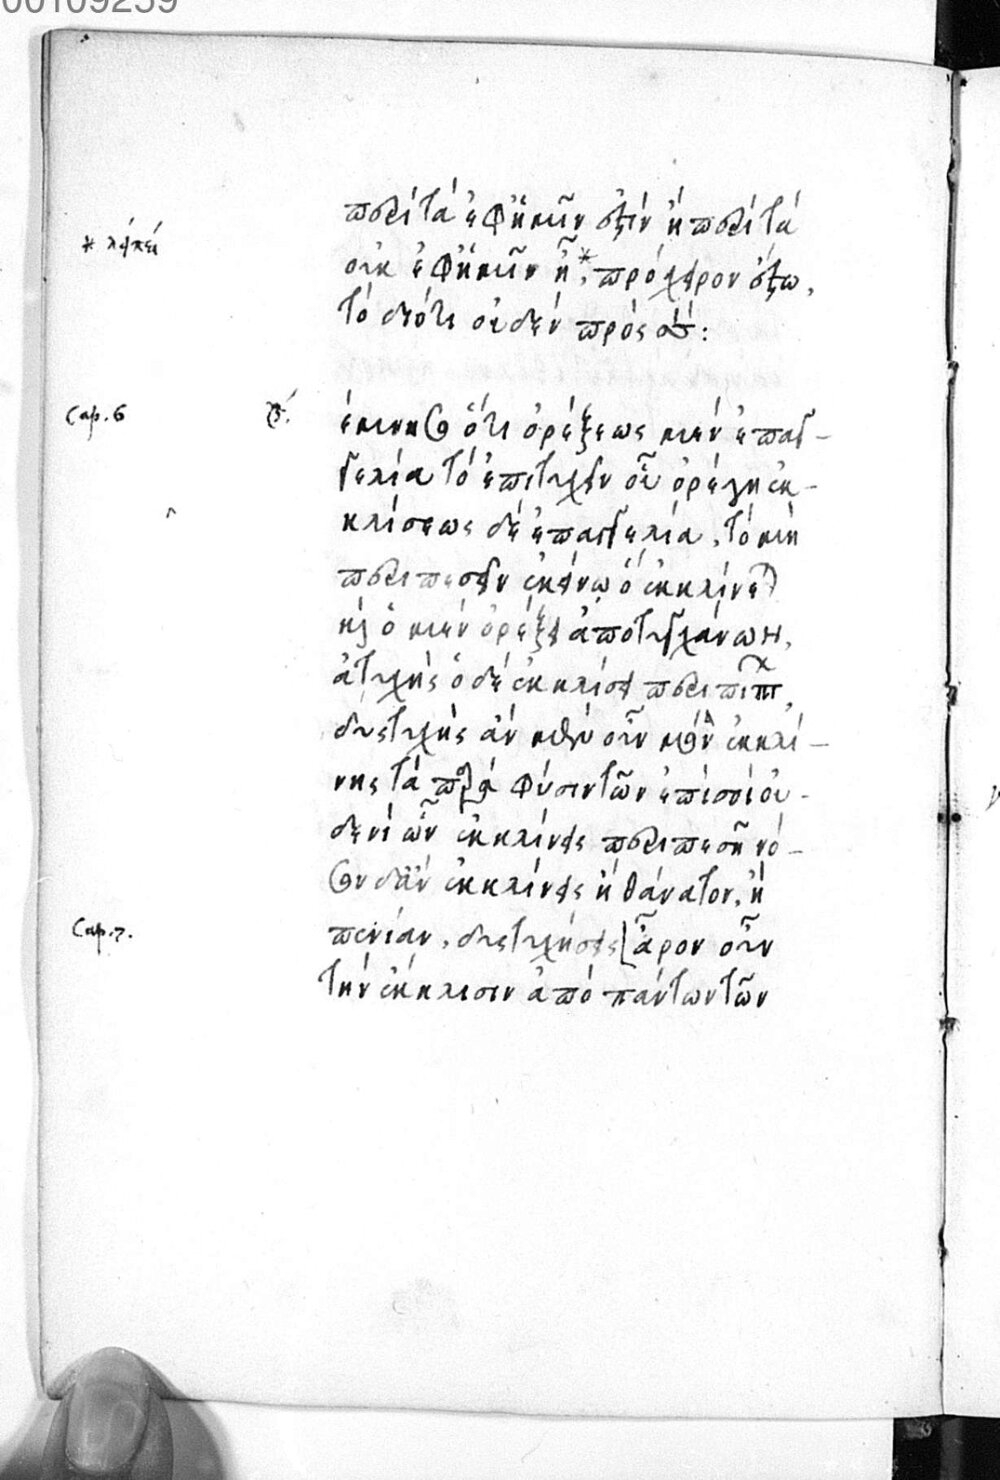 00109259
περὶ τὰ ἐφ' ἡμῖν ἐστὶν ἢ περὶ τὰ
* λείπει
οὐκ ἐφ' ἡμῖν ἢ,* πρόχειρον ἔστω,
τὸ διότι οὐδὲν πρὸς σέ:
Cap. 6
ἐμινησο ὅτι ὀρέξεως μὲν ἐπαγ-
γελία τὸ ἐπιτυχεῖν οὗ ὀρέγη ἐκ-
κλίσεως δὲ ἐπαγγελία, τὸ μὴ
περιπεσεῖν ἐκείνῳ ὃ ἐκκλίνεται
καὶ ὁ μὲν ὀρέξει ἀποτυγχάνων,
ἀτυχὴς ὁ δὲ ἐκκλίσει περιπίπτ,
δυςτυχὴς ἂν μὲν οὖν μόνα ἐκκλί-
νης τὰ παρὰ φύσιν τῶν ἐπὶ σοὶ οὐ-
δενὶ ὧν ἐκκλίνεις περιπεσῆ νό-
σον δ' ἂν ἐκκλίνεις ἢ θάνατον, ἢ
Cap. 7.
πενίαν, δυςτυχήσεις[ ἆρον οὖν
τὴν ἔκκλισιν ἀπὸ πάντων τῶν